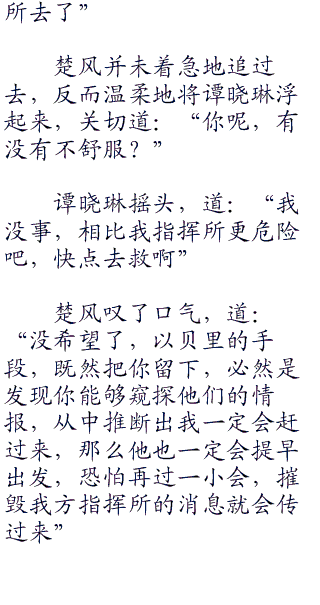 所去了”
楚风并未着急地追过
去，反而温柔地将谭晓琳浮
起来，关切道：“你呢，有
没有不舒服？”
谭晓琳摇头，道：“我
没事，相比我指挥所更危险
吧，快点去救啊”
楚风叹了口气，道：
“没希望了，以贝里的手
段，既然把你留下，必然是
发现你能够窥探他们的情
报，从中推断出我一定会赶
过来，那么他也一定会提早
出发，恐怕再过一小会，摧
毁我方指挥所的消息就会传
过来”